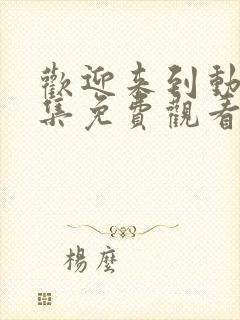 歡迎来到動
集免費觀看
楊麼